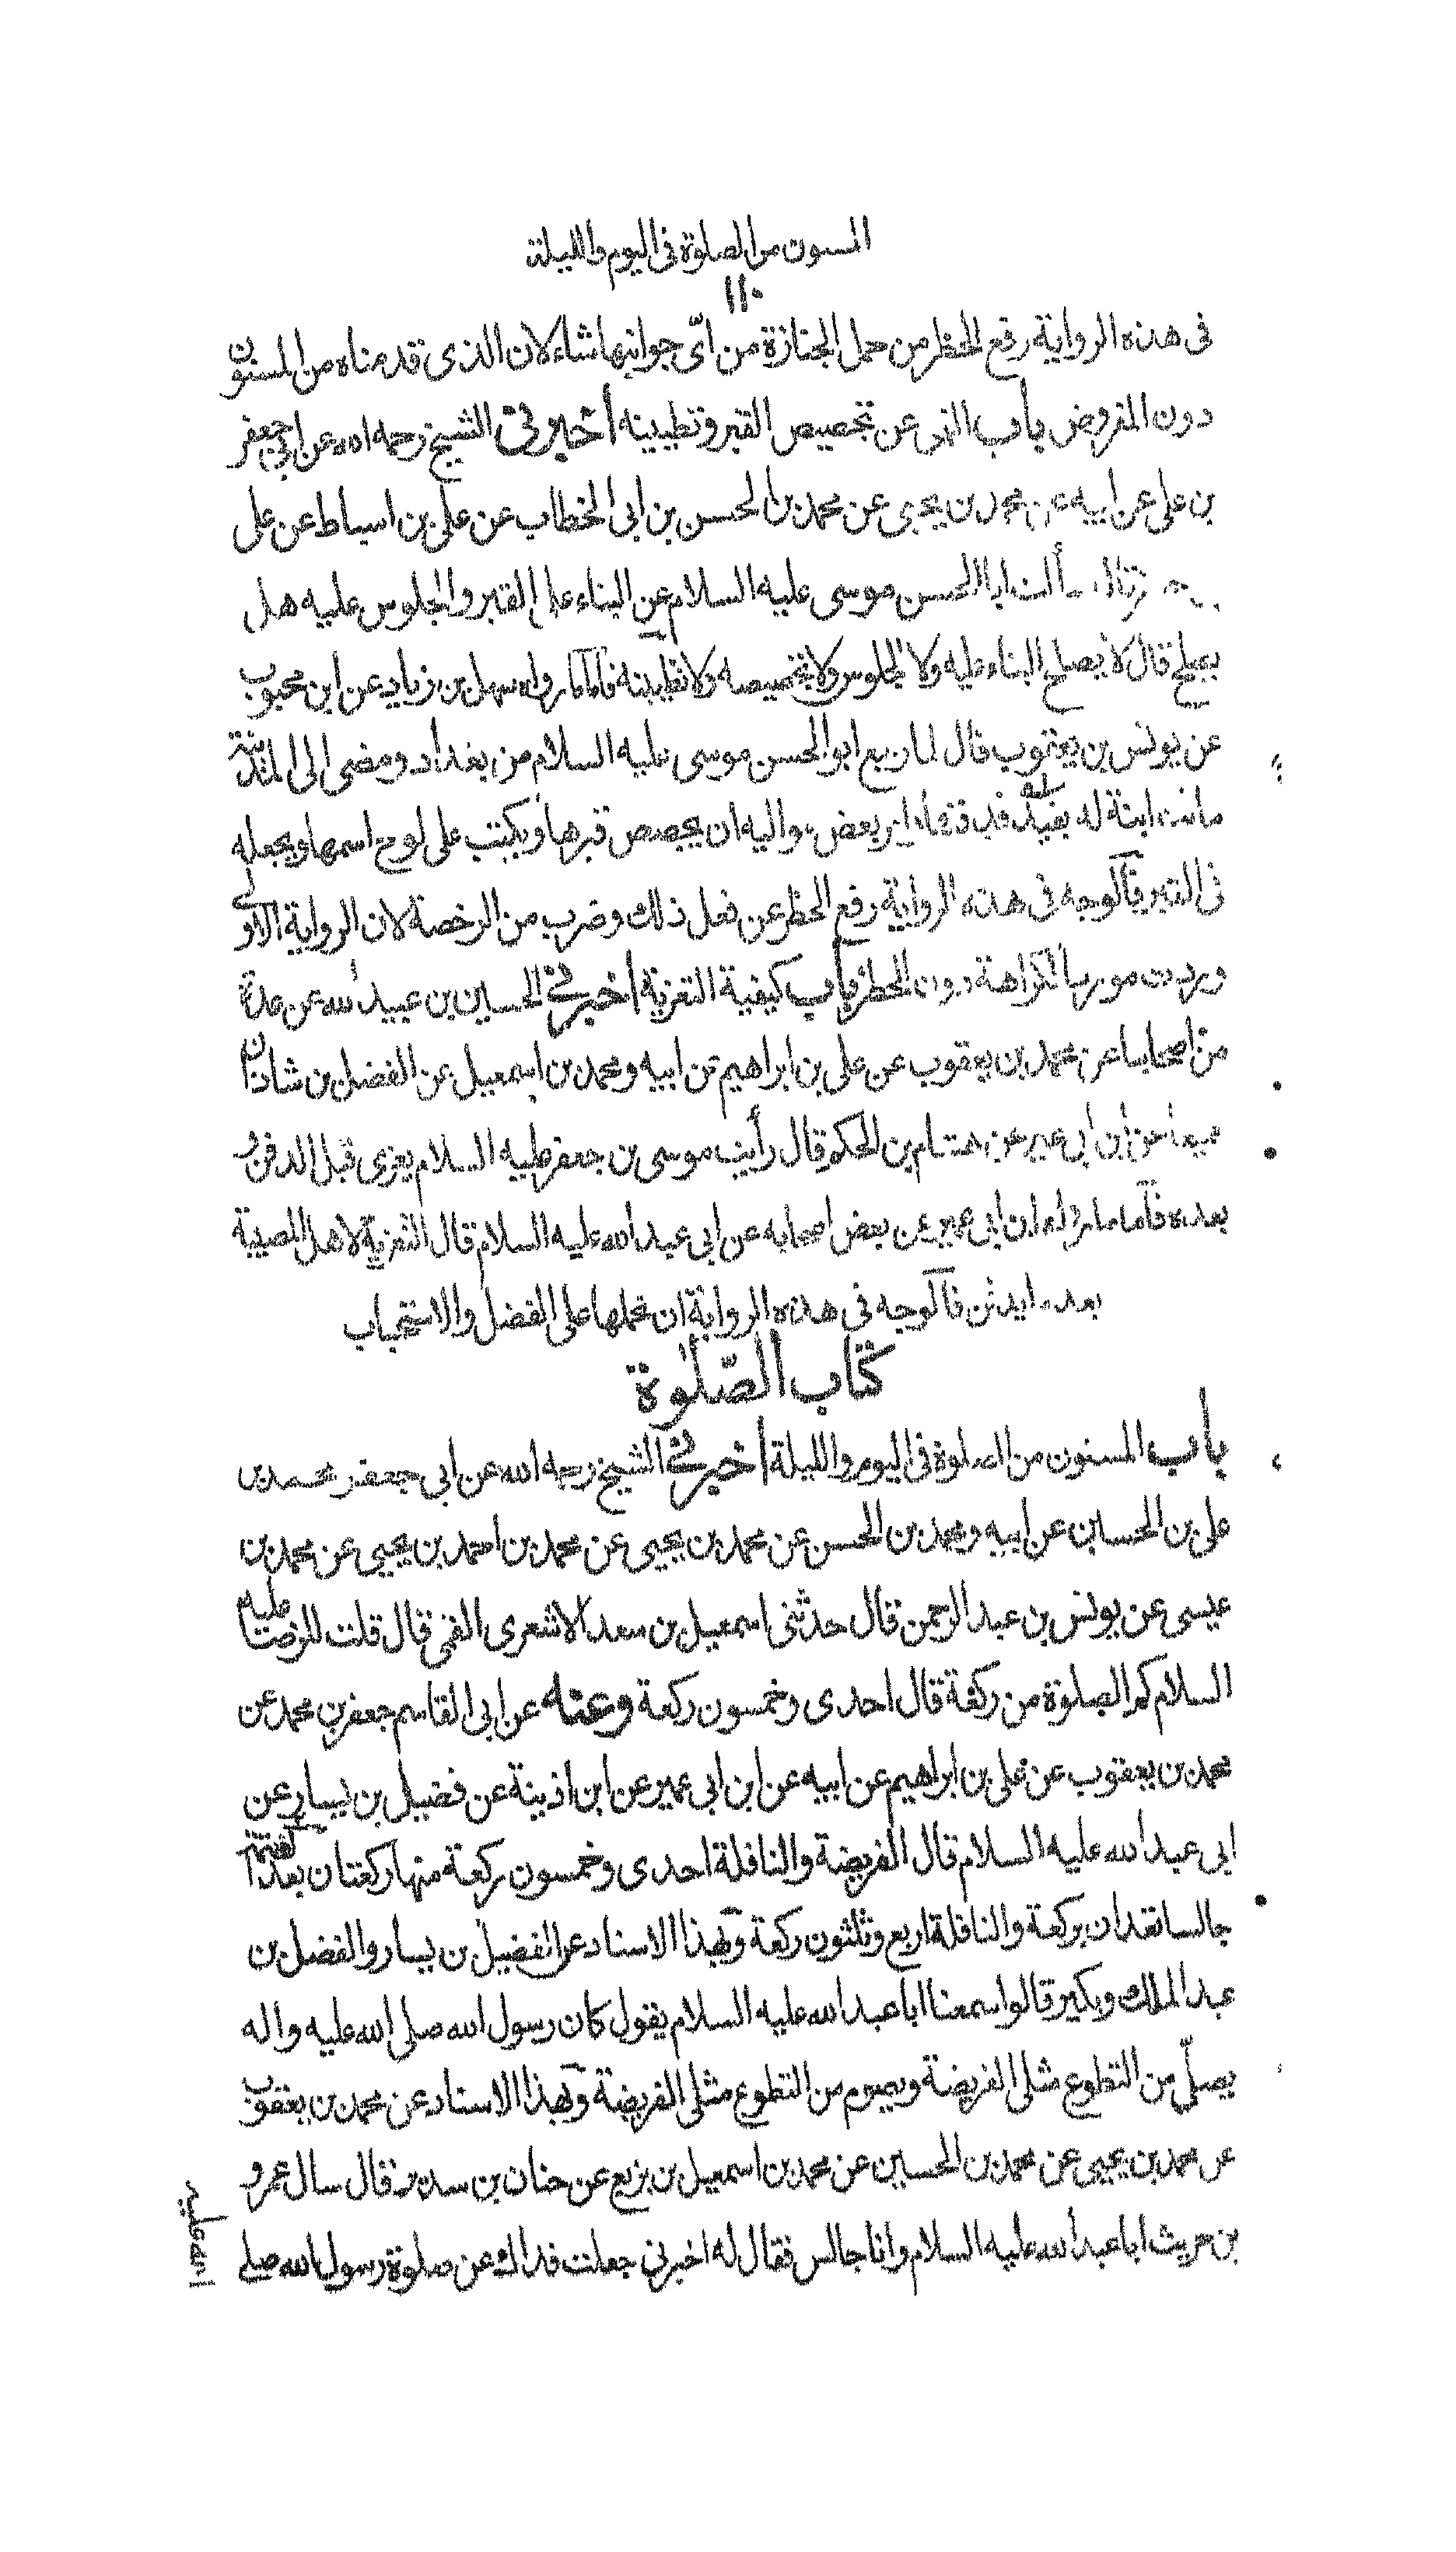 المسنون من الصلوة فى اليوم والليلة
١١٠
فى هذه الرواية رفع الحظر من حمل الجنازة من اىّ جوانبها شاء لان الذى قدمناه من المسنون
دون المفروض باب النهى عن تجصيص القبر وتطيينه اخبرنى الشيخ رحمه الله عن ابى جعفر
بن على عن ابيه عن محمد بن يحيى عن محمد بن الحسن بن ابى الخطاب عن على بن اسباط عن على
قال سألت ابا الحسن موسى عليه السلام عن البناء على القبر والجلوس عليه هل
يصلح قال لا يصلح البناء عليه ولا الجلوس ولا تجصيصه ولا تطيينه فاما ما رواه سهل بن زياد عن ابن محبوب
عن يونس بن يعقوب قال لما رجع ابو الحسن موسى عليه السلام من بغداد ومضى الى المدينة
ماتت ابنة له بفيد فدفنها وامر بعض مواليه ان يجصص قبرها ويكتب على لوح اسمها ويجعله
فى القبر فالوجه فى هذه الرواية رفع الحظر عن فعل ذلك وضرب من الرخصة لان الرواية الاولى
وردت مورد الكراهة دون الحظر باب كيفية التعزية اخبرنى الحسين بن عبيد الله عن عدة
من اصحابنا عن محمد بن يعقوب عن على بن ابراهيم عن ابيه ومحمد بن اسمعيل عن الفضل بن شاذان
جميعا عن ابن ابى عمير عن هشام بن الحكم قال رأيت موسى بن جعفر عليه السلام يعزى قبل الدفن و
بعده فاما ما رواه ابن ابى عمير عن بعض اصحابه عن ابى عبد الله عليه السلام قال التعزية لاهل المصيبة
بعد ما يدفن فالوجه فى هذه الرواية ان نحملها على الفضل والاستحباب
كتاب الصّلوة
باب المسنون من الصلوة فى اليوم والليلة اخبرنى الشيخ رحمه الله عن ابى جعفر محمد بن
على بن الحسين عن ابيه ومحمد بن الحسن عن محمد بن يحيى عن محمد بن احمد بن يحيى عن محمد بن
عيسى عن يونس بن عبد الرحمن قال حدثنى اسمعيل بن سعد الاشعرى القمى قال قلت للرضا عليه
السلام كم الصلوة من ركعة قال احدى وخمسون ركعة وعنه عن ابى القاسم جعفر بن محمد عن
محمد بن يعقوب عن على بن ابراهيم عن ابيه عن ابن ابى عمير عن ابن اذينة عن فضيل بن يسار عن
ابى عبد الله عليه السلام قال الفريضة والنافلة احدى وخمسون ركعة منها ركعتان بعد العتمة
جالسا تعدان بركعة والنافلة اربع وثلثون ركعة وبهذا الاسناد عن الفضيل بن يسار والفضل بن
عبد الملك وبكير قالوا سمعنا ابا عبد الله عليه السلام يقول كان رسول الله صلى الله عليه واله
يصلّى من التطوع مثلى الفريضة ويصوم من التطوع مثلى الفريضة وبهذا الاسناد عن محمد بن يعقوب
عن محمد بن يحيى عن محمد بن الحسين عن محمد بن اسمعيل بن بزيع عن حنان بن سدير قال سال عمرو
بن حريث ابا عبد الله عليه السلام وانا جالس فقال له اخبرنى جعلت فداك عن صلوة رسول الله صلى
الله عليه